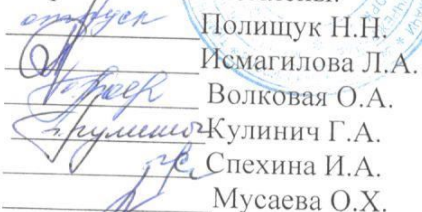 отпуск Полищук Н.Н.
Исмагилова Л.А.
Волковая О.А.
Кулинич Г.А.
Спехина И.А.
Мусаева О.Х.